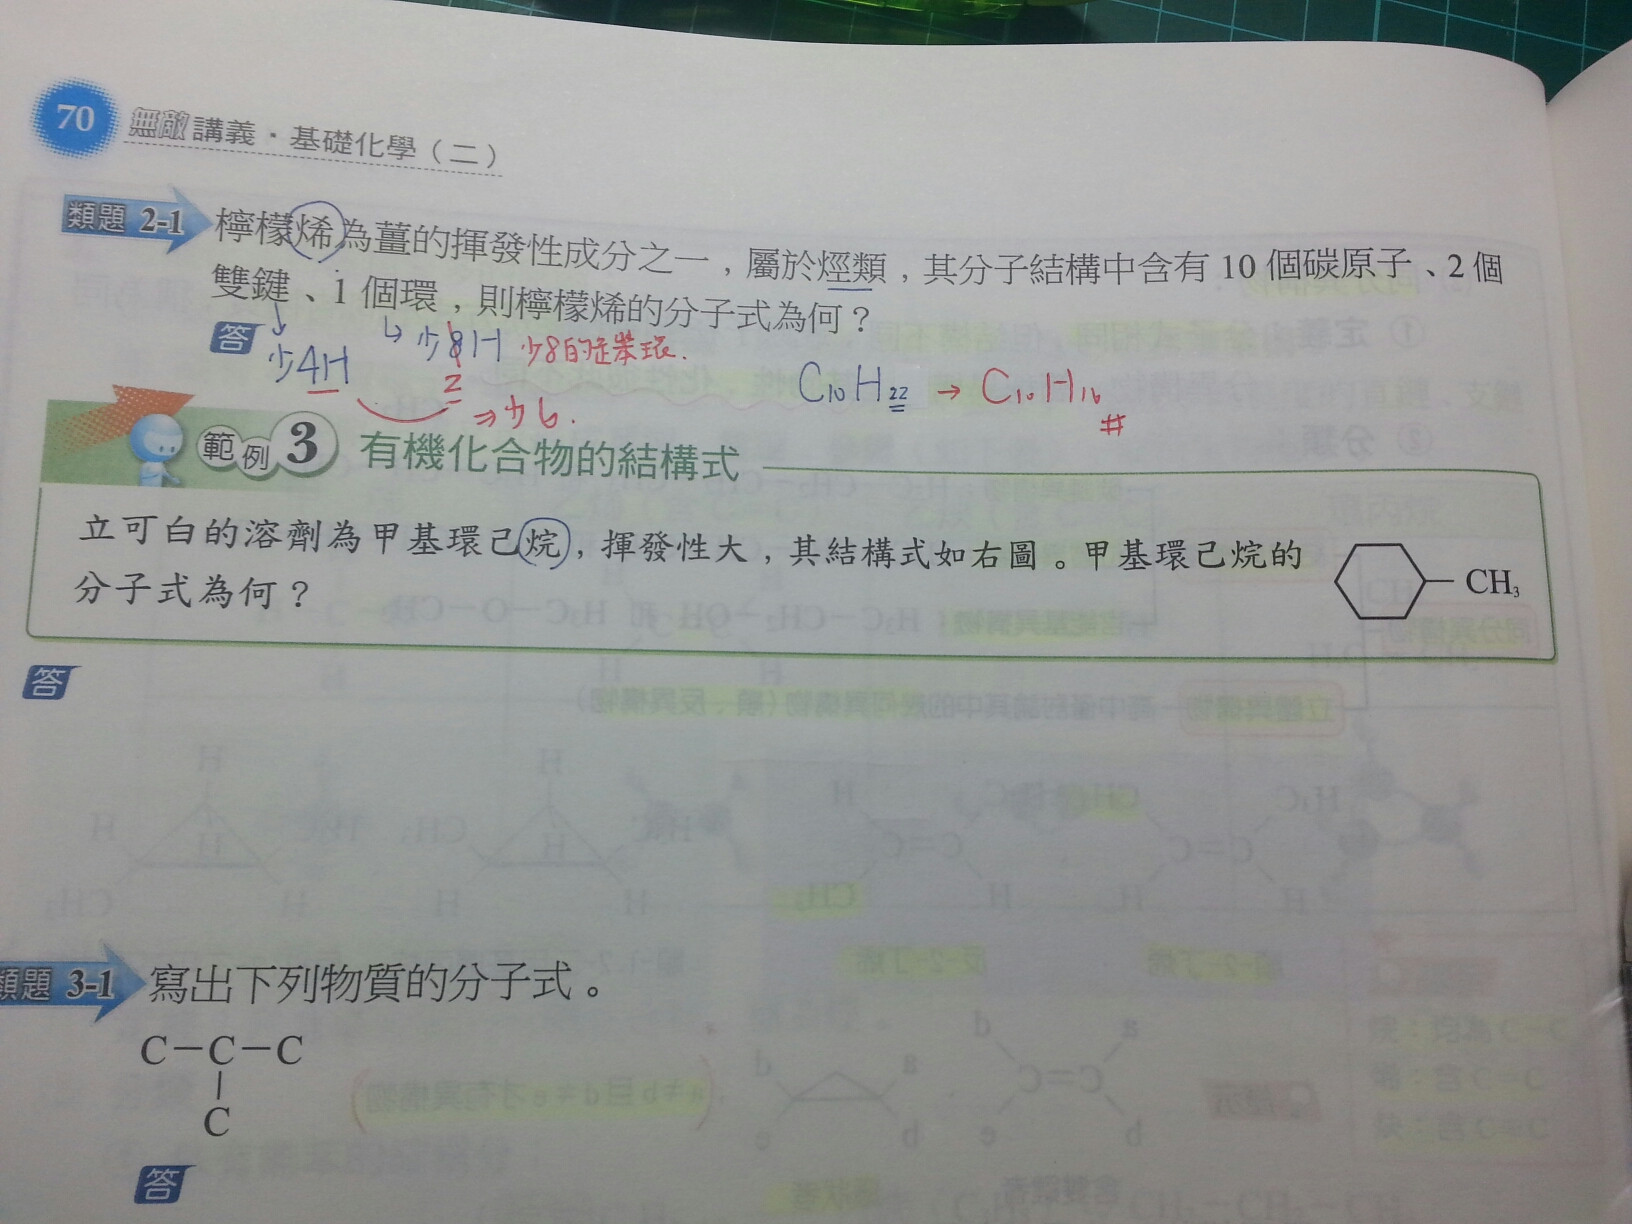 70 無敵講義・基礎化學（二）
類題 2-1 檸檬烯為薑的揮發性成分之一，屬於烴類，其分子結構中含有 10 個碳原子、2 個
雙鍵、1 個環，則檸檬烯的分子式為何？
答 少4H 少8H 少8的是苯環.
2 ⇒少6.
C₁₀H₂₂ → C₁₀H₁₆ #
範例 3 有機化合物的結構式
立可白的溶劑為甲基環己烷，揮發性大，其結構式如右圖。甲基環己烷的
分子式為何？
CH₃
答
類題 3-1 寫出下列物質的分子式。
C－C－C
C
答